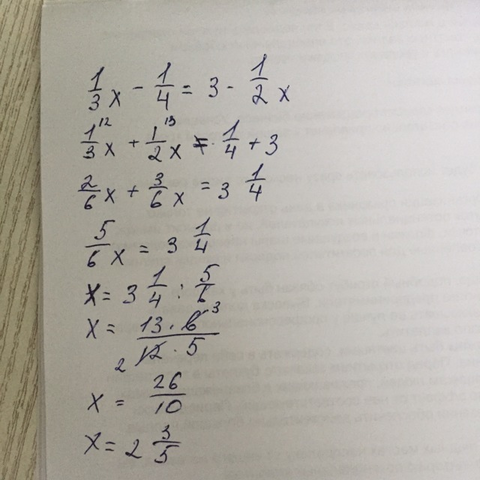 1/3 x - 1/4 = 3 - 1/2 x
1/3 ¹² x + 1/2 ¹³ x = 1/4 + 3
2/6 x + 3/6 x = 3 1/4
5/6 x = 3 1/4
x = 3 1/4 : 5/6
x = 13 · 6 ³ / 2 12 · 5
x = 26/10
x = 2 3/5